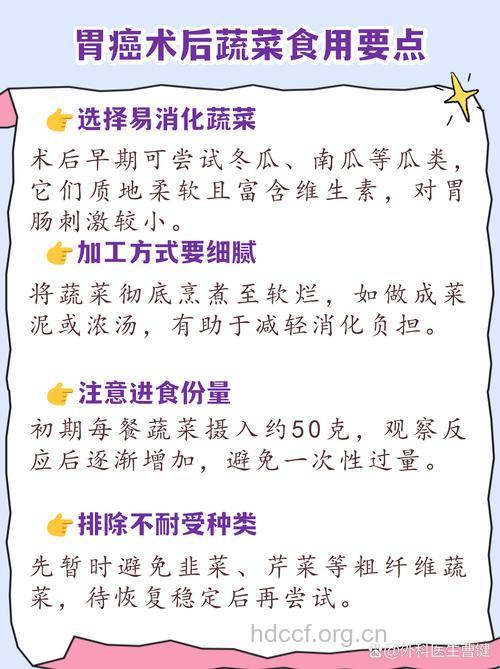 胃癌术后蔬菜食用要点
选择易消化蔬菜
术后早期可尝试冬瓜、南瓜等瓜类，
它们质地柔软且富含维生素，对胃
肠刺激较小。
加工方式要细腻
将蔬菜彻底烹煮至软烂，如做成菜
泥或浓汤，有助于减轻消化负担。
注意进食份量
初期每餐蔬菜摄入约50克，观察反
应后逐渐增加，避免一次性过量。
排除不耐受种类
先暂时避免韭菜、芹菜等粗纤维蔬
菜，待恢复稳定后再尝试。
hdccf.org.cn
@外科医生曹键